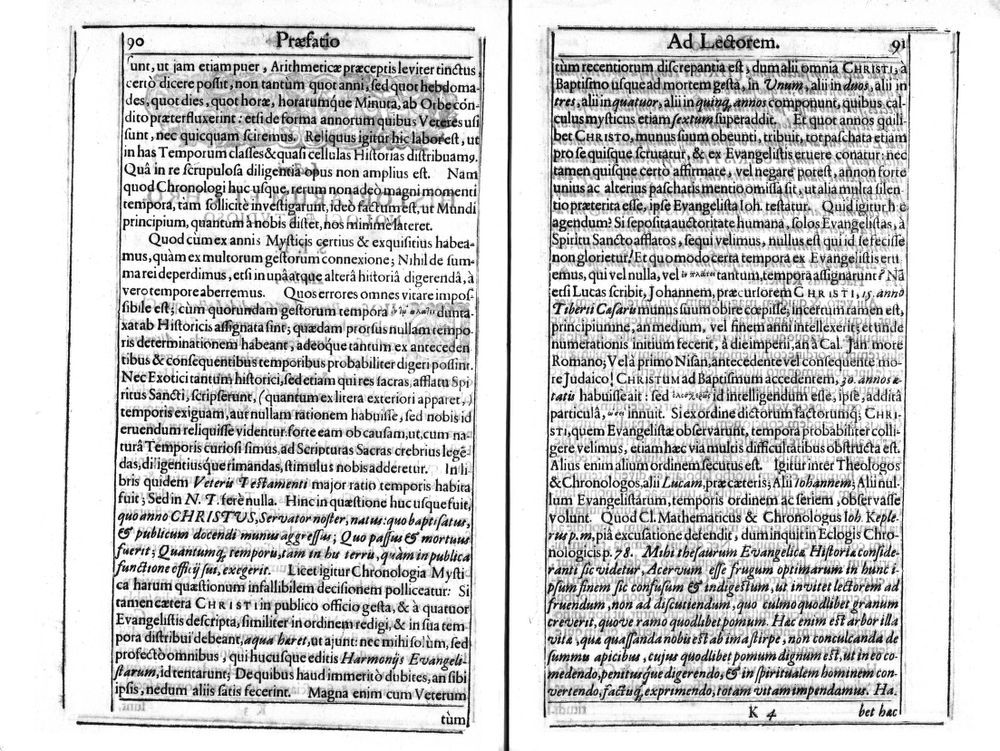 90 Præfatio
sunt, ut jam etiam puer, Arithmeticæ præceptis leviter tinctus,
certò dicere possit, non tantum quot anni, sed quot hebdoma-
des, quot dies, quot horæ, horarumq́ue Minuta, ab Orbe con-
dito præterfluxerint: etsi de forma annorum quibus Veteres usi
sunt, nec quicquam sciremus. Reliquus igitur hic labor est, ut
in has Temporum classes & quasi cellulas Historias distribuamꝰ.
Quâ in re scrupulosâ diligentiâ opus non amplius est. Nam
quod Chronologi huc usque, rerum non adeò magni momenti
tempora, tam sollicitè investigarunt, ideò factum est, ut Mundi
principium, quantum à nobis distet, nos minimè lateret.
Quod cùm ex annis Mysticis certius & exquisitius habea-
mus, quàm ex multorum gestorum connexione; Nihil de sum-
ma rei deperdimus, etsi in unâ atque alterâ historiâ digerendâ, à
vero tempore aberremus. Quos errores omnes vitare impos-
sibile est; cùm quorundam gestorum tempora dunta-
xat ab Historicis assignata sint; quædam prorsus nullam tempo-
ris determinationem habeant, adeóque tantum ex anteceden
tibus & consequentibus temporibus probabiliter digeri possint.
Nec Exotici tantum historici, sed etiam qui res sacras, afflatu Spi
ritus Sancti, scripserunt, (quantum ex litera exteriori apparet,)
temporis exiguam, aut nullam rationem habuisse, sed nobis id
eruendum reliquisse videntur. forte eam ob causam, ut, cum na-
turâ Temporis curiosi simus, ad Scripturas Sacras crebrius legē-
das, diligentiusq́ue rimandas, stimulus nobis adderetur. In li-
bris quidem Veteris Testamenti major ratio temporis habita
fuit; Sed in N. T. ferè nulla. Hinc in quæstione huc usque fuit,
quo anno CHRISTUS, Servator noster, natus: quo baptisatus,
& publicum docendi munus aggressus; Quo passus & mortuus
fuerit; Quantumq́; temporis, tam in his terris, quàm in publica
functione officij sui, exegerit. Licet igitur Chronologia Mysti-
ca harum quæstionum infallibilem decisionem polliceatur: Si
tamen cætera CHRISTI in publico officio gesta, & à quatuor
Evangelistis descripta, similiter in ordinem redigi, & in sua tem-
pora distribui debeant, aqua hæret, ut ajunt: nec mihi solùm, sed
profectò omnibus, qui hucusque editis Harmonijs Evangeli-
starum, id tentarunt; De quibus haud immeritò dubites, an sibi
ipsis, nedum aliis satis fecerint. Magna enim cum Veterum
tùm
Ad Lectorem. 91
tùm recentiorum discrepantia est, dum alii omnia CHRISTI, à
Baptismo usque ad mortem gesta, in Unum, alii in duos, alii in
tres, alii in quatuor, alii in quinq́; annos componunt, quibus cal-
culus mysticus etiam sextum superaddit. Et quot annos quili-
bet CHRISTO, munus suum obeunti, tribuit, tot paschata etiam
pro se quisque scrutatur, & ex Evangelistis eruere conatur: nec
tamen quisque certò affirmare, vel negare potest, annon forte
unius ac alterius paschatis mentio omissa sit, ut alia multa silen-
tio præterita esse, ipse Evangelista Joh. testatur. Quid igitur hîc
agendum? Si sepositâ auctoritate humana, solos Evangelistas, à
Spiritu Sancto afflatos, sequi velimus, nullus est qui id se fecisse
non glorietur! Et quomodo certa tempora ex Evangelistis eru
emus, qui vel nulla, vel tantum, tempora assignarunt? Nā
etsi Lucas scribit, Johannem, præcursorem CHRISTI, 15. anno
Tiberii Cæsaris munus suum obire cœpisse; incertum tamen est,
principiumne, an medium, vel finem anni intellexerit; et unde
numerationis initium fecerit, à die imperii, an à Cal. Jan. more
Romano; Vel à primo Nisan, antecedente vel consequente mo-
re Judaico! CHRISTUM ad Baptismum accedentem, 30. annos æ-
tatis habuisse ait: sed id intelligendum esse, ipse, additâ
particulâ, innuit. Si ex ordine dictorum factorumq́; CHRI-
STI, quem Evangelistæ observarunt, tempora probabiliter colli-
gere velimus, etiam hæc via multis difficultatibus obstructa est.
Alius enim alium ordinem secutus est. Igitur inter Theologos
& Chronologos, alii Lucam, præ cæteris; Alii Johannem; Alii nul-
lum Evangelistarum, temporis ordinem ac seriem, observasse
volunt. Quod Cl. Mathematicus & Chronologus Joh. Keple-
rus p. m, piâ excusatione defendit, dum inquit in Eclogis Chro-
nologicis p. 78. Mihi thesaurum Evangelicæ Historiæ conside-
ranti sic videtur, Acervum esse frugum optimarum in hunc i-
psum finem sic confusum & indigestum, ut invitet lectorem ad
fruendum, non ad discutiendum, quo culmo quodlibet granum
creverit, quove ramo quodlibet pomum. Hæc enim est arbor illa
vitæ, quæ quassanda nobis est ab ima stirpe, non conculcanda de
summis apicibus, cujus quodlibet pomum dignum est, ut in eo co-
medendo, penitusq́ue digerendo, & in spiritualem hominem con-
vertendo, factuq́; exprimendo, totam vitam impendamus. Ha.
K 4 bet hac